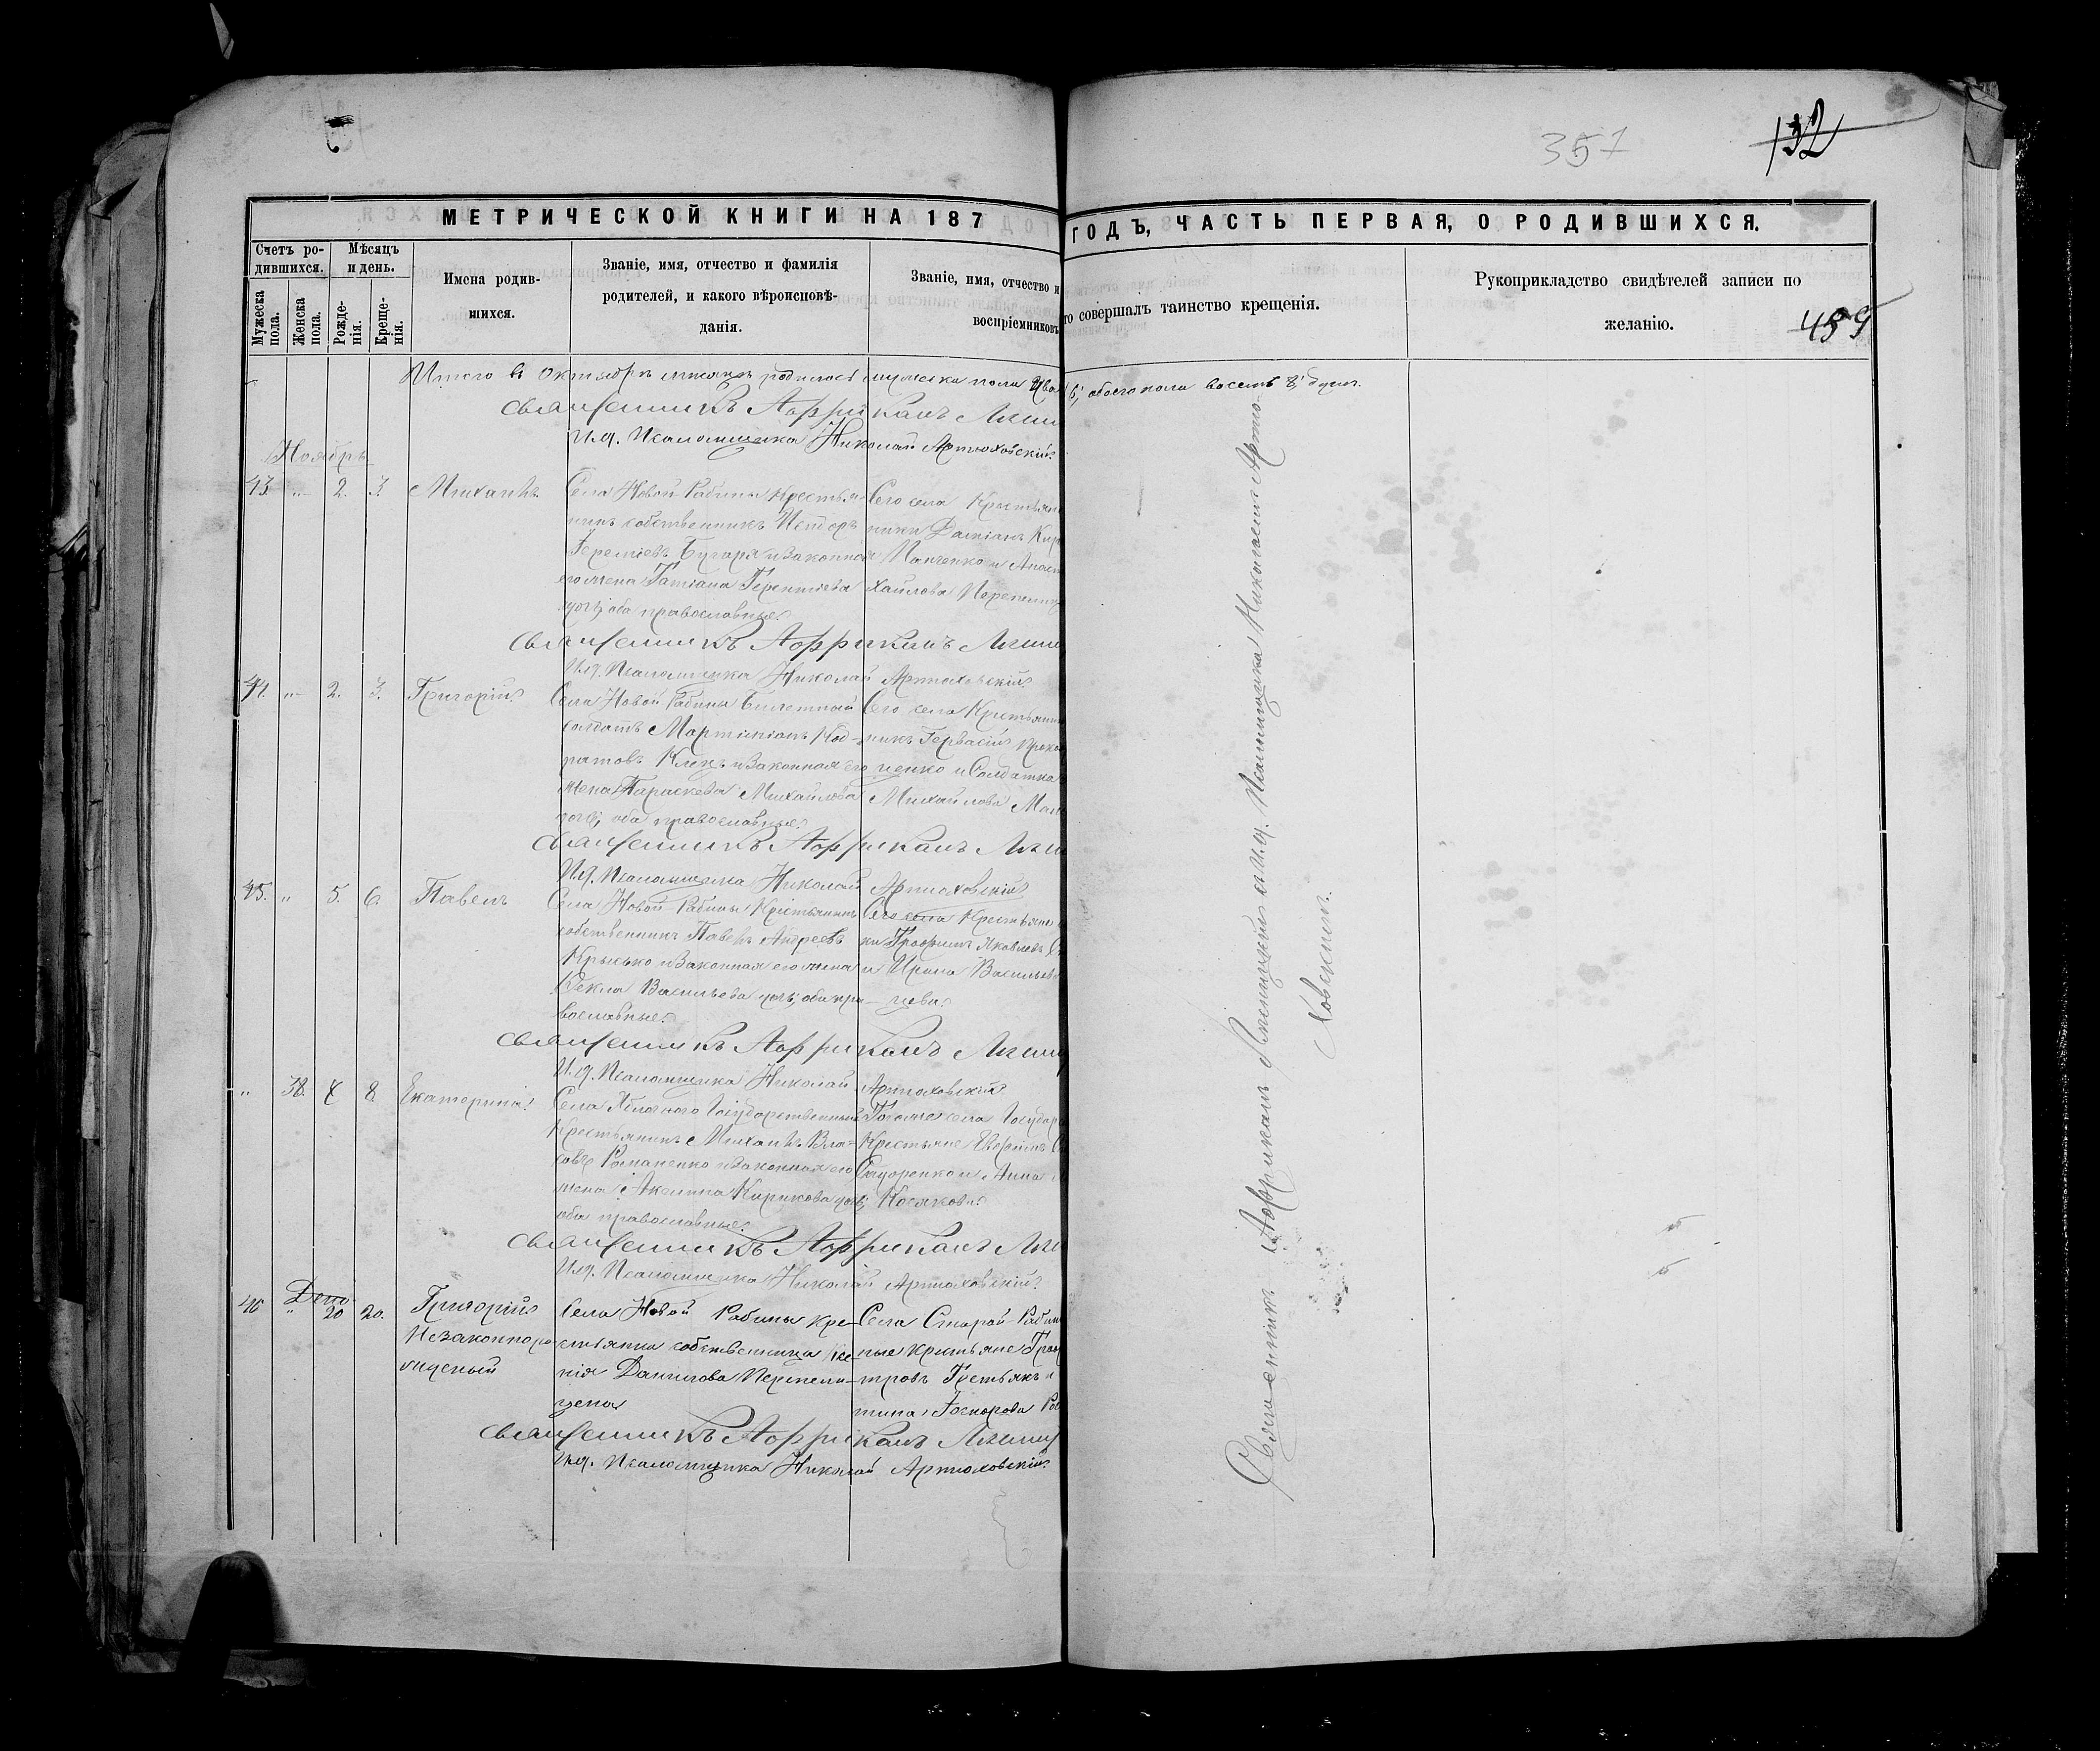 351
132
МЕТРИЧЕСКОЙ КНИГИ НА 187
ГОДЪ, ЧАСТЬ ПЕРВАЯ, О РОДИВШИХСЯ.
Счетъ ро-
дившихся.
Мѣсяцъ
и день.
Мужеска
пола.
Женска
пола.
Рожде-
нія.
Креще-
нія.
Имена родив-
шихся.
Званіе, имя, отчество и фамилія
родителей, и какого вѣроисповѣ-
данія.
Званіе, имя, отчество и
воспріемниковъ
то совершалъ таинство крещенія.
Рукоприкладство свидѣтелей записи по
желанію.
459
Итого въ Октябрѣ мѣсяцѣ родилось мужеска пола
обоего пола восемь 8, душъ.
Священникъ Аффриканъ
И.д. Псаломщика Николай Артюховскій
Ноябрь
43. „ 2. 3. Михаилъ
Села Новой-Рабины Крестья-
нинъ собственникъ
Бугаря и законная
его жена Татіана Терентіева
дочь, оба православные
Сего села Крестьяне
ники Даміанъ Кир
Панченко и
хайлова Перепели
Священникъ Аффриканъ
И.д. Псаломщика Николай Артюховскій
44. „ 2. 3. Григорій
Села Новой Рабины Билетный
солдатъ Мартиніанъ Код-
ратовъ Клецъ и законная его
жена Параскева Михайлова
дочь, оба православные
Сего села Крестьянин
никъ Гервасій Проко
ценко и Солдатка
Михайлова
Священникъ Аффриканъ
И.д. Псаломщика Николай Артюховскій
45. „ 5. 6. Павелъ
Села Новой-Рабины Крестьянинъ
собственникъ Павелъ Андреевъ
Крысько и законная его жена
Ѳекла Васильева дочь, оба пра-
вославные
Сего села Крестьяне
ки Трофимъ Яковлевъ
и Ирина Васильев
цева
Священникъ Аффриканъ
И.д. Псаломщика Николай Артюховскій
„ 38. 8. Екатерина
Села Яблочного Государственный
крестьянинъ Михаилъ Вла-
совъ Романенко и законная его
жена Акилина Кирикова дочь,
оба православные
Тогоже села Государ
Крестьяне Ефимъ
Сидоренко и Анна
Косякова
Священникъ Аффриканъ
И.д. Псаломщика Николай Артюховскій
46 „ 20 20. Григорій
Незаконноро-
жденый
Села Новой Рабины кре-
стьянка собственница Ксе-
нія Данилова Перепели-
цена
Села Старой-Рабин
ные крестьяне Гри
тровъ Третьякъ и
тина
Священникъ Аффриканъ
И.д. Псаломщика Николай Артюховскій
Священникъ Аффриканъ и и.д. Псаломщика Николай Артю-
ховскій